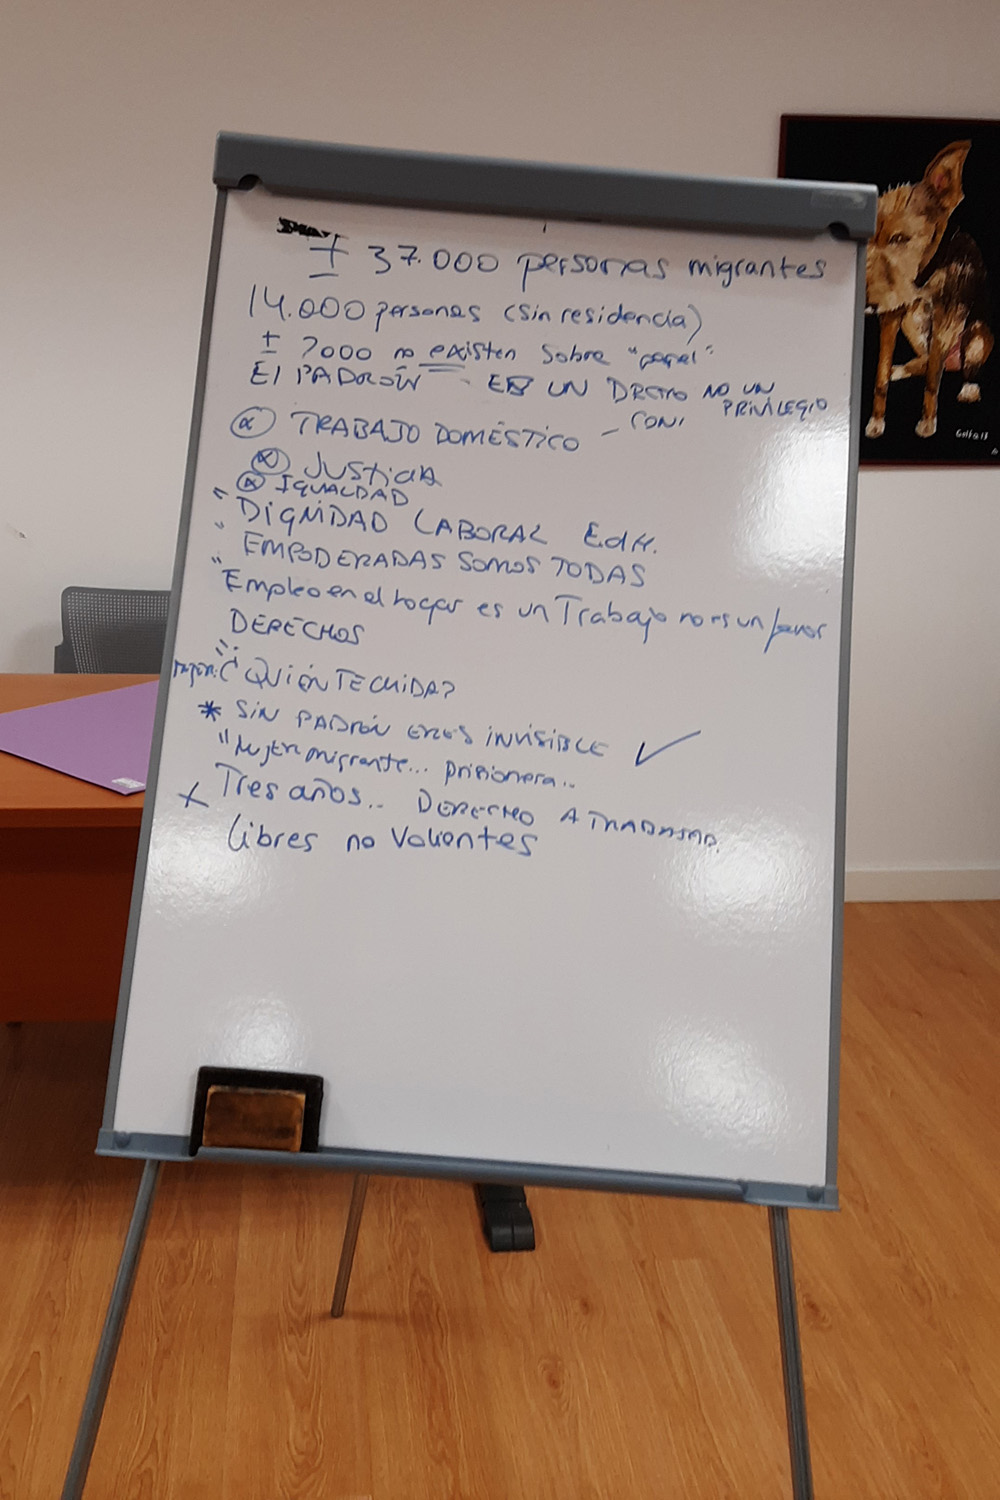 ± 37.000 personas migrantes
14.000 personas (sin residencia)
± 7000 no existen sobre "papel"
El PADRÓN - ES UN DRCTO NO UN PRIVILEGIO
TRABAJO DOMÉSTICO - CONI
JUSTICIA
IGUALDAD
" DIGNIDAD LABORAL EdH.
" EMPODERADAS SOMOS TODAS
" Empleo en el hogar es un Trabajo no es un favor
DERECHOS
¿QUIÉN TE CUIDA?
* SIN PADRÓN ERES INVISIBLE ✓
"Mujer migrante... prisionera..
x Tres años.. DERECHO A TRABAJAR.
libres no Valientes